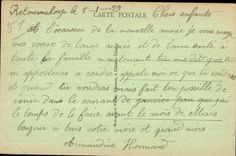 le 5-1-39
CARTE POSTALE
Chers enfants
A l'occasion de la nouvelle année je vous envoye
mes voeux de bonne année et de bonne santé à
toute la famille maintenant tu me dit que tu
m'apportera à condition
quand tu voudras mais fait ton possible de
venir dans le courant de janvier pour que j'ai
le temps de la faire avant le mois de Mars
bonjour à tous votre mère et grand mère
Armandine